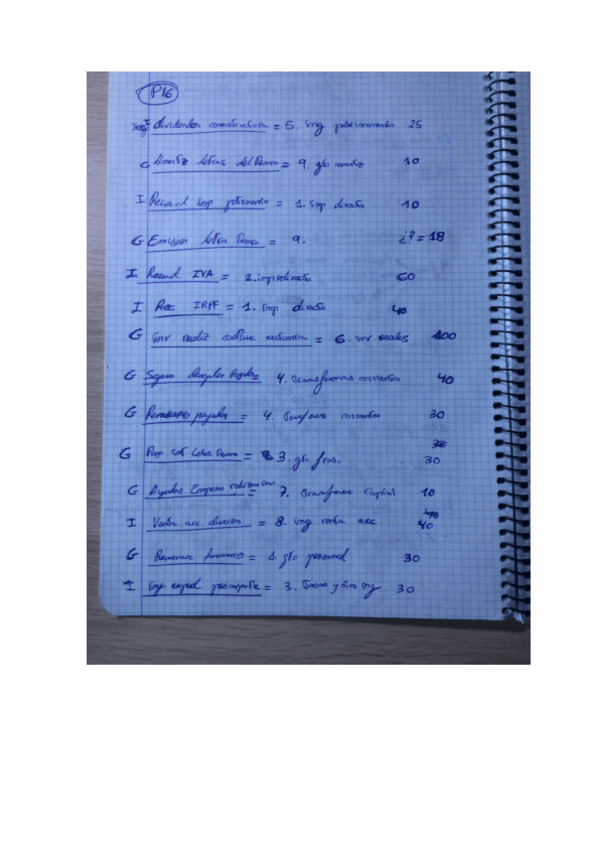 P16
I dividendos = 5. ing patrimoniales 25
G Amortiz letras del Tesoro = 9. gto amortiz 10
I Recaud imp patrimonio = 1. imp directo 10
G Emision letras Tesoro = 9. ¿? = 18
I Recaud IVA = 2. imp indirecto 60
I Rec IRPF = 1. imp directo 40
G Inv realiz = 6. inv reales 100
G Seguro desempleo = 4. Transferencias corrientes 40
G Pensiones pagadas = 4. Transferenc corrientes 30
G Pago int Letras Tesoro = 3. gto fros. 30
G Ayudas Empresas = 7. Transferenc Capital 10
I Venta acc diversas = 8. ing venta acc 40
G Remunerac = 1. gto personal 30
I exped pasaporte = 3. Tasas y otros ing 30